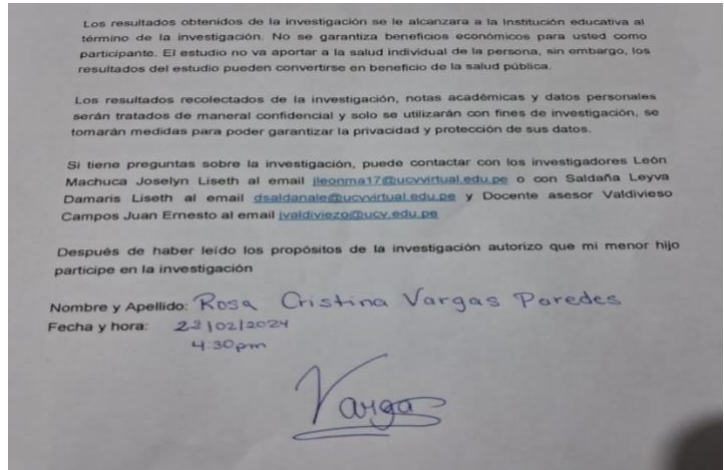 Los resultados obtenidos de la investigación se le alcanzara a la Institución educativa al
término de la investigación. No se garantiza beneficios económicos para usted como
participante. El estudio no va aportar a la salud individual de la persona, sin embargo, los
resultados del estudio pueden convertirse en beneficio de la salud pública.
Los resultados recolectados de la investigación, notas académicas y datos personales
serán tratados de maneral confidencial y solo se utilizarán con fines de investigación, se
tomarán medidas para poder garantizar la privacidad y protección de sus datos.
Si tiene preguntas sobre la investigación, puede contactar con los investigadores León
Machuca Joselyn Liseth al email jleonma17@ucvvirtual.edu.pe o con Saldaña Leyva
Damaris Liseth al email dsaldanale@ucvvirtual.edu.pe y Docente asesor Valdivieso
Campos Juan Ernesto al email jvaldiviezo@ucv.edu.pe
Después de haber leído los propósitos de la investigación autorizo que mi menor hijo
participe en la investigación
Nombre y Apellido: Rosa Cristina Vargas Paredes
Fecha y hora: 22/02/2024
4:30pm
Vargas